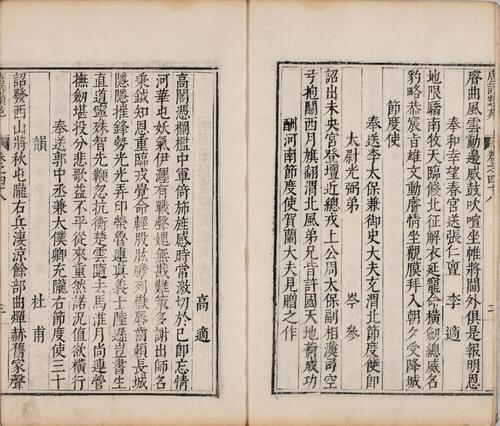 膺曲風雲動邊威鼓吹喧坐帷將閫外俱是報明恩
奉和幸望春宮送張仁亶 李適
地限驕南牧天臨餞北征解衣延寵命横劒總威名
豹略恭宸旨雄文動睿情坐觀膜拜入朝夕受降城
節度使
奉送李太保兼御史大夫充渭北節度使即
太尉光弼弟 岑參
詔出未央宮登壇近總戎上公周太保副相漢司空
弓抱關西月旗翻渭北風弟兄皆許國天地荷成功
酬河南節度使賀蘭大夫見贈之作
高適
高閣憑欄檻中軍倚旆旌感時常激切於已即忘情
河華屯妖氣伊瀍有戰聲媿無戡難策多謝出師名
秉鉞知恩重臨戎覺命輕股肱瞻列嶽唇齒賴長城
隱隱摧鋒勢光光弄印榮魯連真義士陸遜豈書生
直道寧殊智先鞭忽抗衡楚雲隨去馬淮月尚連營
撫劒堪投分悲歌益不平從來重然諾况值欲横行
奉送郭中丞兼大僕卿充隴右節度使三十
韻 杜甫
詔發西山將秋屯隴右兵凄涼餘部曲燀赫舊家聲